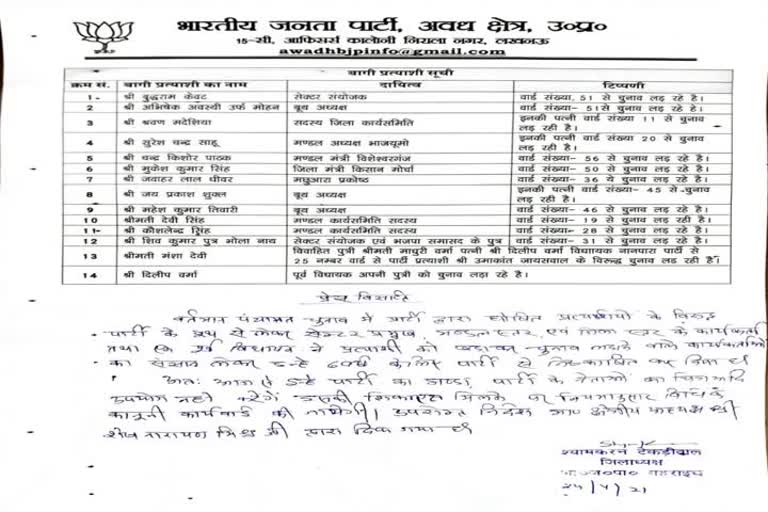 भारतीय जनता पार्टी, अवध क्षेत्र, उ०प्र०
15-सी, आफिसर्स कालोनी निराला नगर, लखनऊ
awadhbjpinfo@gmail.com
बागी प्रत्याशी सूची
क्रम स. बागी प्रत्याशी का नाम दायित्व टिप्पणी
1- श्री बुद्धराम केवट सेक्टर संयोजक वार्ड संख्या, 51 से चुनाव लड़ रहे है।
2 श्री अभिषेक अवस्थी उर्फ मोहन बूथ अध्यक्ष वार्ड संख्या- 51से चुनाव लड़ रहे है।
3 श्री श्रवण मदेशिया सदस्य जिला कार्यसमिति इनकी पत्नी वार्ड संख्या 11 से चुनाव लड़ रही है।
4 श्री सुरेश चन्द्र साहू मण्डल अध्यक्ष भाजयूमो इनकी पत्नी वार्ड संख्या 20 से चुनाव लड़ रही है।
5 श्री चन्द्र किशोर पाठक मण्डल मंत्री विशेश्वरगंज वार्ड संख्या- 56 से चुनाव लड़ रहे है।
6 श्री मुकेश कुमार सिंह जिला मंत्री किसान मोर्चा वार्ड संख्या- 50 से चुनाव लड़ रहे है।
7 श्री जवाहर लाल धीवर मछुआरा प्रकोष्ठ वार्ड संख्या- 36 से चुनाव लड़ रहे है।
8 श्री जय प्रकाश शुक्ल बूथ अध्यक्ष इनकी पत्नी वार्ड संख्या- 45 से चुनाव लड़ रही है।
9 श्री महेश कुमार तिवारी बूथ अध्यक्ष वार्ड संख्या- 46 से चुनाव लड़ रहे है।
10 श्रीमती देवी सिंह मण्डल कार्यसमिति सदस्य वार्ड संख्या- 19 से चुनाव लड़ रही है।
11- श्री कौशलेन्द्र सिंह मण्डल कार्यसमिति सदस्य वार्ड संख्या- 28 से चुनाव लड़ रहे है।
12 श्री शिव कुमार पुत्र भोला नाथ सेक्टर संयोजक एवं भजपा सभासद के पुत्र वार्ड संख्या- 31 से चुनाव लड़ रहे है।
13 श्रीमती मंशा देवी विवाहित पुत्री श्रीमती माधुरी वर्मा पत्नी श्री दिलीप वर्मा विधायक नानपारा पार्टी से
25 नम्बर वार्ड से पार्टी प्रत्याशी श्री उमाकांत जायसवाल के विरुद्ध चुनाव लड़ रही है।
14 श्री दिलीप वर्मा पूर्व विधायक अपनी पुत्री को चुनाव लड़ा रहे है।
प्रेस विज्ञप्ति
वर्तमान पंचायत चुनाव में पार्टी द्वारा घोषित प्रत्याशियों के विरुद्ध
पार्टी के से लेकर सेक्टर प्रमुख, मण्डल स्तर, एवं जिला स्तर के कार्यकर्ता
तथा एक पूर्व विधायक ने प्रत्याशी को चुनाव लड़ाने वाले कार्यकर्ताओं
का संज्ञान लेकर इन्हे के लिए पार्टी से निष्कासित कर दिया है
अतः आज से इन्हे पार्टी का झण्डा, पार्टी के नेताओं का चित्र आदि
उपयोग नही करेंगे इसकी शिकायत मिलने पर नियमानुसार विधिक
कानूनी कार्यवाई की जायेगी। उपरोक्त निर्देश क्षेत्रीय अध्यक्ष श्री
शेष नारायण मिश्र जी द्वारा दिया गया है
श्यामकरन टेकड़ीवाल
जिलाध्यक्ष
भा०ज०पा० बहराइच